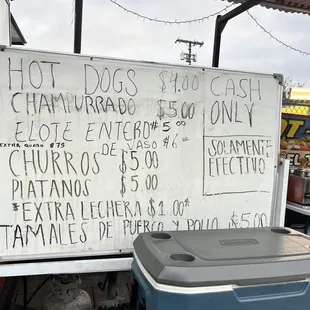 HOT DOGS $4.00
CHAMPURRADO $5.00
ELOTE ENTERO $5.00
DE VASO $6.00
EXTRA QUESO $.75
CHURROS $5.00
PLATANOS $5.00
*EXTRA LECHERA $1.00*
TAMALES DE PUERCO Y POLLO $5.00
CASH
ONLY
SOLAMENTE
EFECTIVO